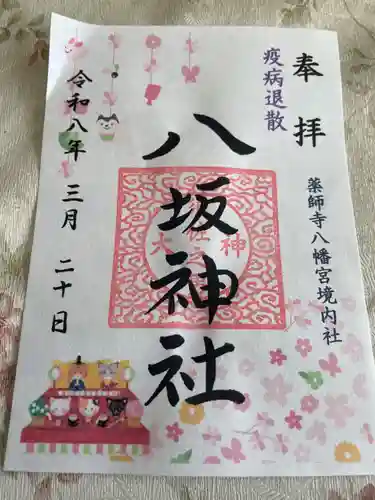 奉拝
疫病退散
薬師寺八幡宮境内社
八坂神社
令和八年三月二十日